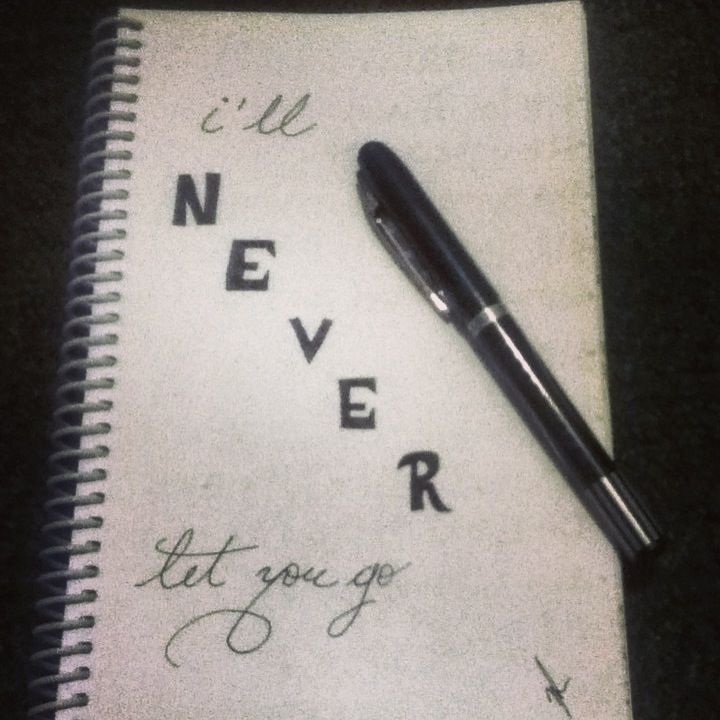 i'll
NEVER
let you go